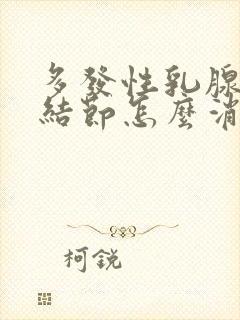 多發性乳腺
結節怎麼消
柯銳